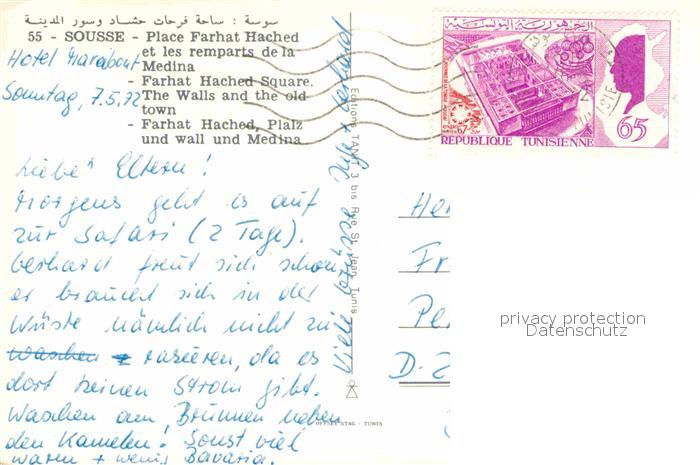 سوسة : ساحة فرحات حشاد وسور المدينة
55 - SOUSSE - Place Farhat Hached
et les remparts de la
Medina
- Farhat Hached Square.
The Walls and the old
town
- Farhat Hached, Plalz
und wall und Medina
Hotel Marabout
Sonntag, 7.5.72
Liebe Eltern!
Morgens geht es auf
zur Safari (2 Tage).
Gerhard freut sich schon,
er braucht sich in der
Wüste nämlich nicht zu
waschen rasieren, da es
dort keinen Strom gibt.
Waschen am Brunnen neben
den Kamelen! Sonst viel
waren + wenig Bavaria.
Viele Grüsse Inge + Gerhard
Editions TANIT 3 bis Rue St. Jean Tunis
OFFSET STAG - TUNIS
الجمهورية التونسية
67
REPUBLIQUE TUNISIENNE
65
He
Fr
Pe
D-
privacy protection
Datenschutz